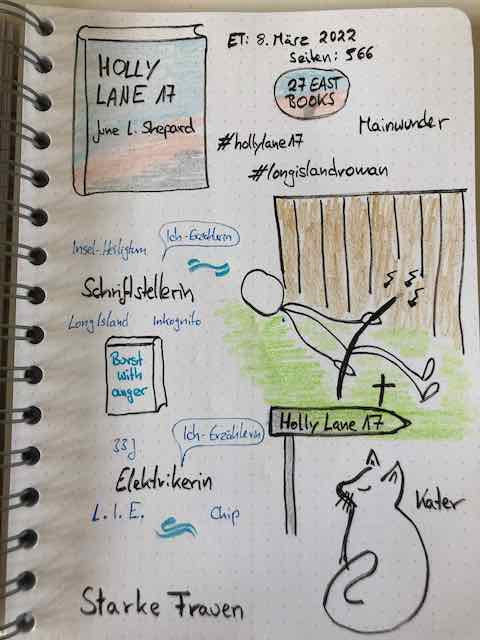 HOLLY
LANE 17
June L. Shepard
ET: 8. März 2022
Seiten: 566
27 EAST
BOOKS
Mainwunder
#hollylane17
#longislandroman
Insel-Heiligtum
Ich-Erzählerin
Schriftstellerin
Long Island Inkognito
Burst
with
anger
Holly Lane 17
33 J.
Ich-Erzählerin
Elektrikerin
L. I. E. Chip
Kater
Starke Frauen